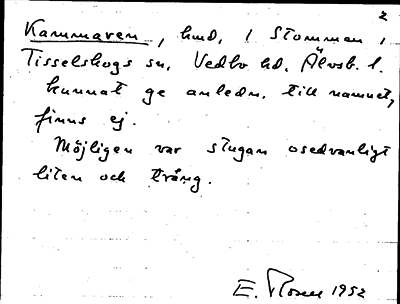 2
Kammaren, hmd, i Stommen i
Tisselskogs sn, Vedbo hd, Älvsb. l.
kunnat ge anledn. till namnet,
finns ej.
Möjligen var stugan osedvanligt
liten och trång.
E. Rosen 1952